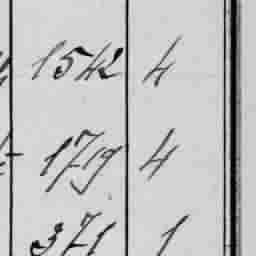 1542 4
1719 4
371 1